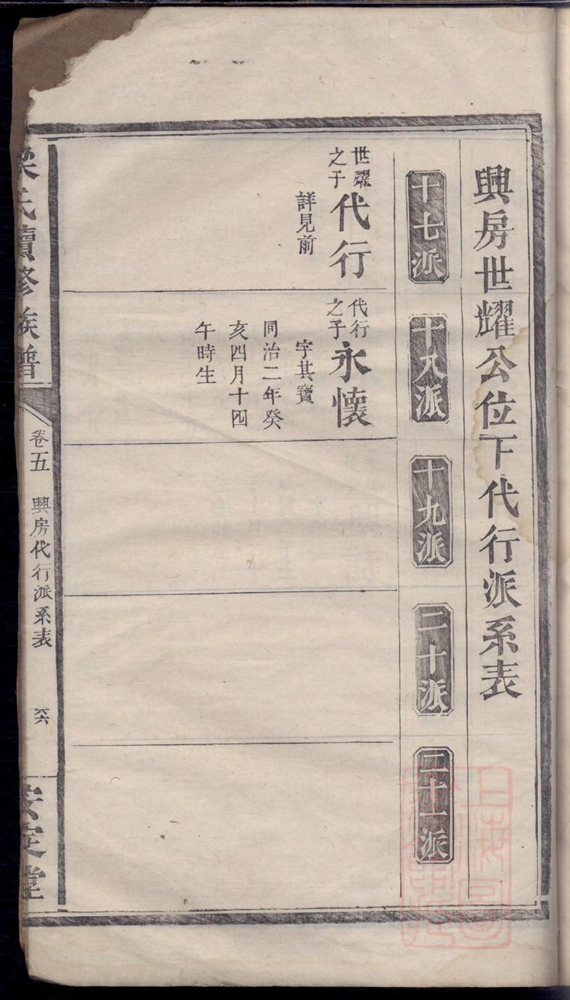 興房世耀公位下代行派系表
十七派
世耀
之子
代行
詳見前
十八派
代行
之子
永懷
字其寶
同治二年癸
亥四月十四
午時生
十九派
二十派
二十一派
氏續修族譜
卷五
興房代行派系表
六六
安定堂